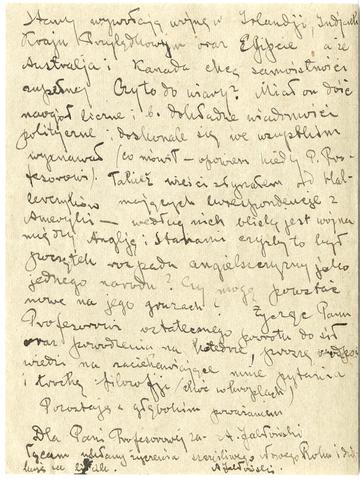 Stany wywołają wojnę w Irlandji, Indjach
Kraju Przylądkowym oraz Egipcie a że
Australja i Kanada chcą samoistności
zupełnej. Czy to do wiary? Miał on dość
naogół liczne i b. dokładne wiadomości
polityczne i doskonale się we wszystkim
wyznawał (co mówił – opowiem kiedy P. Pro-
fesorowi). Takież wieści słyszałem od Hal-
lerczyków mających korespondencje z
Ameryki – według nich bliską jest wojna
między Anglją i Stanami czyby to był
początek rozpadu angielszczyzny jako
jednego narodu? Czy mogą powstać
nowe na jego gruzach? Życzę Panu
Profesorowi ostatecznego powrotu do sił
oraz powodzenia na katedrze, proszę
wiedzi na zaciekawiające mnie pytania
i trochę filozofji (choć w kroplach)
Pozostaję z głębokim poważaniem
Dla Pani Profesorowej za- A. Jabłoński
łączam układny życzenia szczęśliwego Nowego Roku i
A Jabłoński